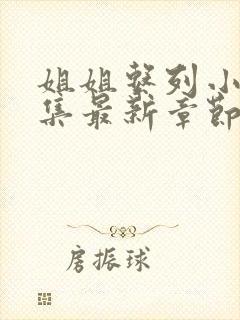 姐姐系列小
集最新章节
房振球